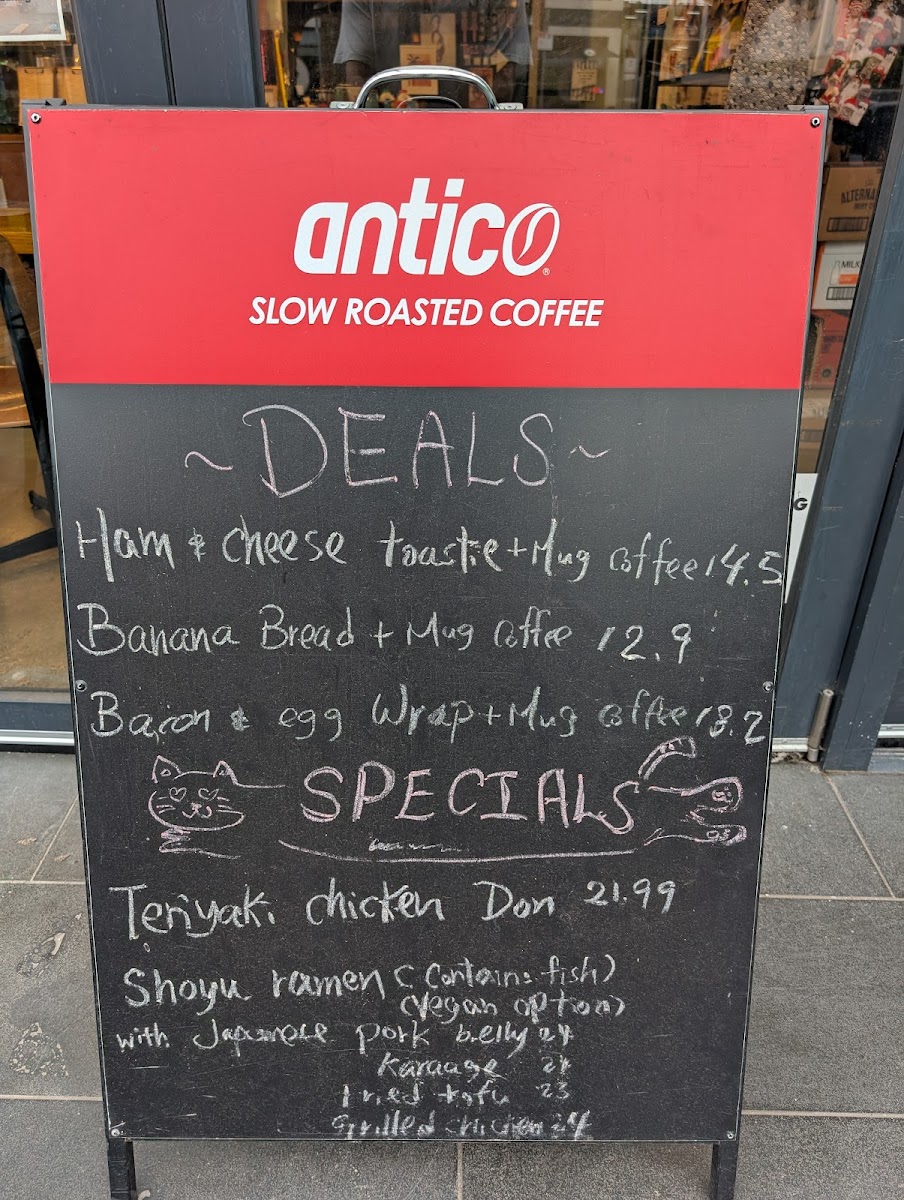 antico
SLOW ROASTED COFFEE
~ DEALS ~
Ham & cheese toastie + Mug coffee 14.5
Banana Bread + Mug coffee 12.9
Bacon & egg Wrap + Mug coffee 18.2
SPECIALS
Teriyaki chicken Don 21.99
Shoyu ramen (contains fish)
(vegan option)
with Japanese pork belly 24
Karaage 24
Fried tofu 23
Grilled chicken 24
MILK
G